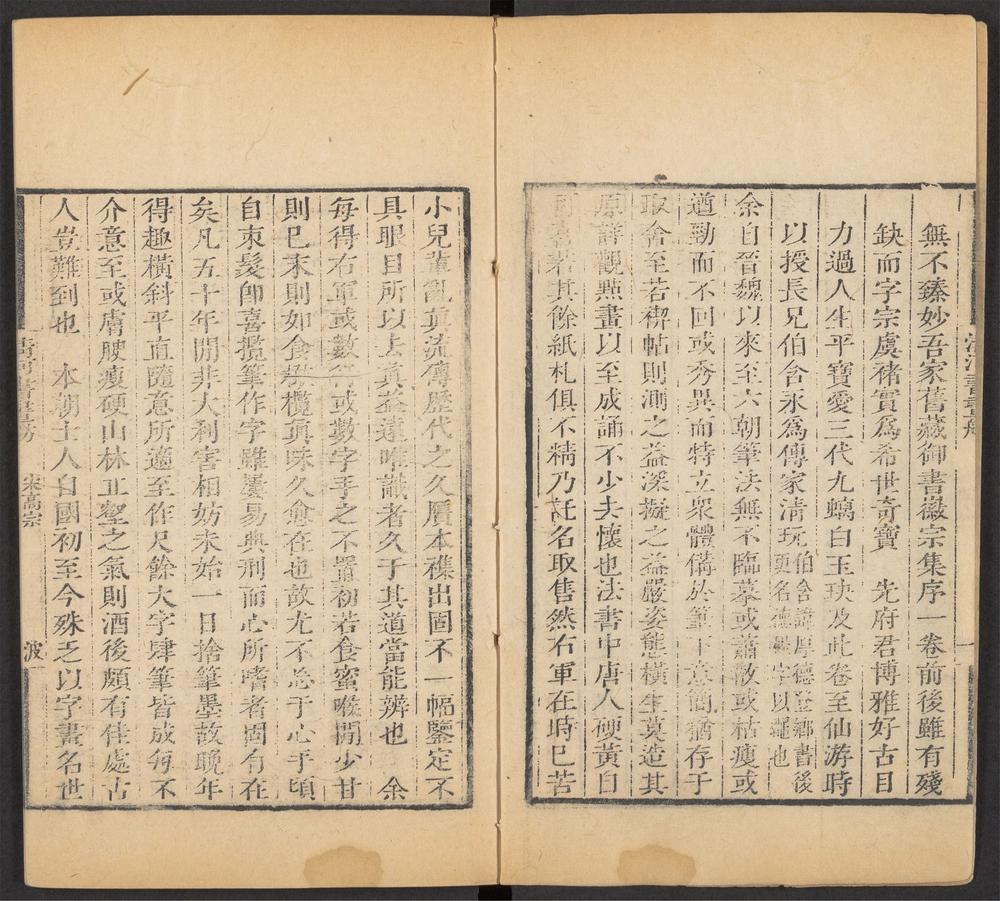 清河書畫舫 一
無不臻妙吾家舊藏御書徽宗集序一卷前後雖有殘
缺而字宗虞褚實爲希世奇寶　先府君博雅好古目
力過人生平寶愛三代九螭白玉玦及此卷至仙游時
以授長兄伯含永爲傳家清玩伯含諱厚德登鄉書後
更名德字以繩也
余自晉魏以來至六朝筆法無不臨摹或蕭散或枯瘦或
遒勁而不回或秀異而特立衆體備於筆下意簡猶存于
取舍至若禊帖則測之益深擬之益嚴姿態橫生莫造其
原詳觀點畫以至成誦不少去懷也法書中唐人硬黃自
可喜若其餘紙札俱不精乃託名取售然右軍在時已苦
小兒輩亂眞流傳歷代之久贋本襍出固不一幅鑒定不
具眼目所以去眞益遠唯識者久于其道當能辨也　余
每得右軍或數行或數字手之不置初若食蜜喉間少甘
則已末則如食橄欖眞味久愈在也故尤不忘于心手頃
自束髮卽喜攬筆作字雖屢易典刑而心所嗜者固有在
矣凡五十年間非大利害相妨未始一日捨筆墨故晚年
得趣橫斜平直隨意所適至作尺餘大字肆筆皆成每不
介意至或膚腴瘦硬山林丘壑之氣則酒後頗有佳處古
人豈難到也　本朝士人自國初至今殊乏以字畫名世
清河書畫舫 宋高宗 波